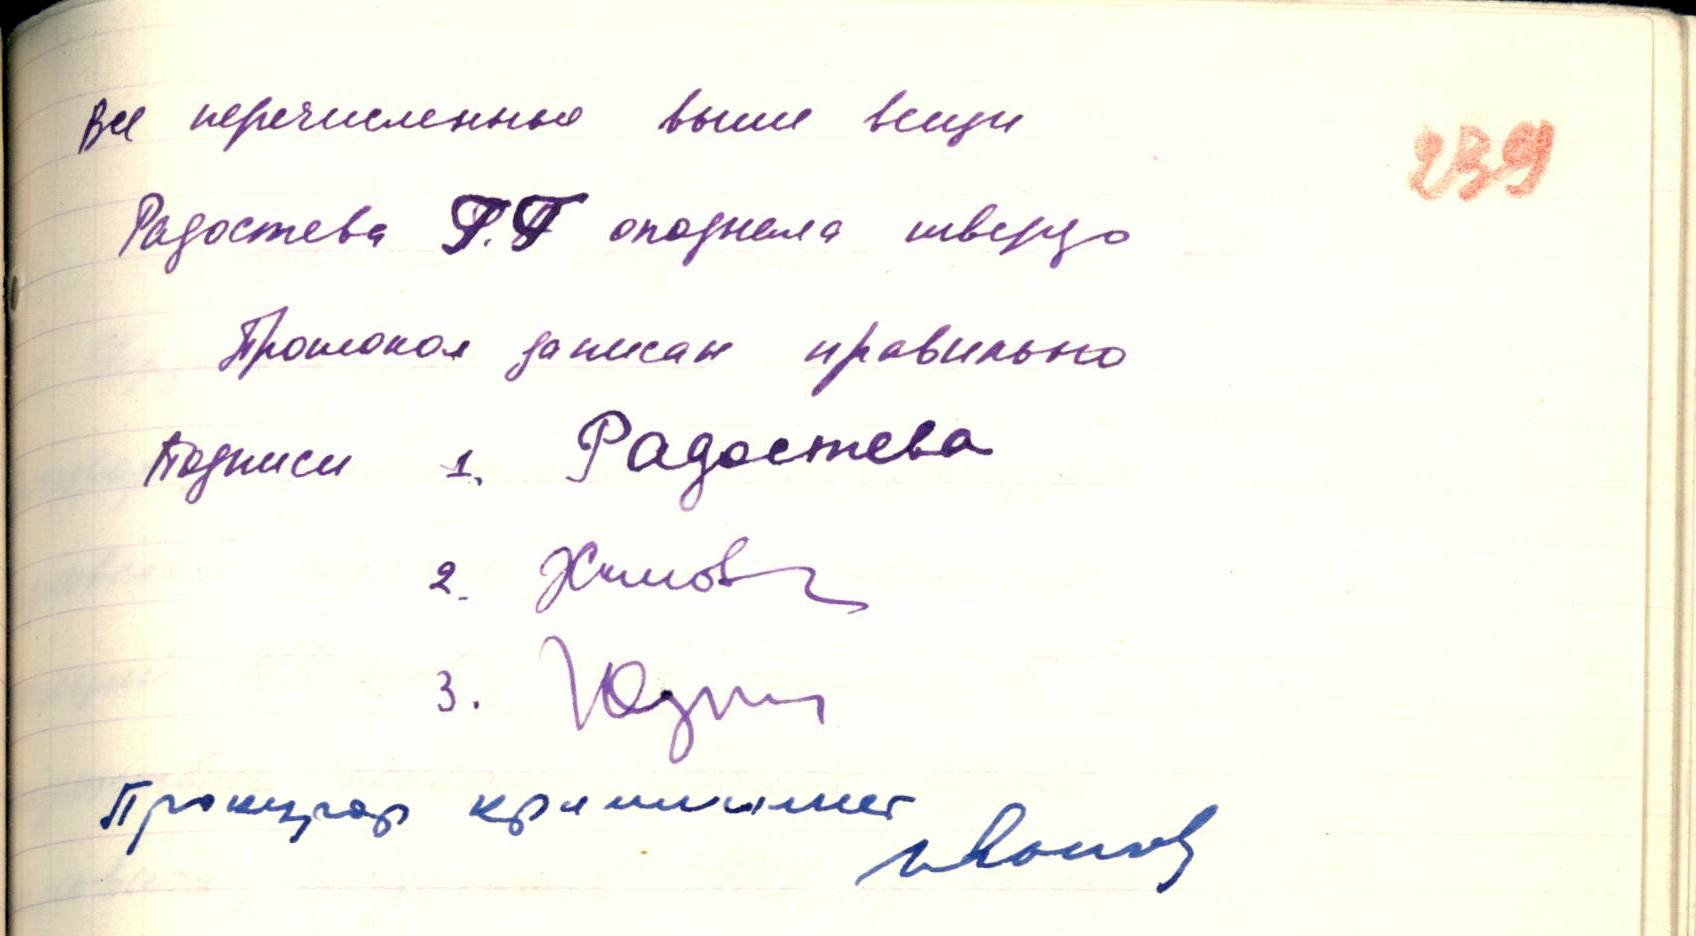 Все перечисленные выше вещи
239
Радостева Г.П опознала твердо
Протокол записан правильно
Подписи 1. Радостева
2. Хамов
3. Юдин
Прокурор криминалист
Иванов